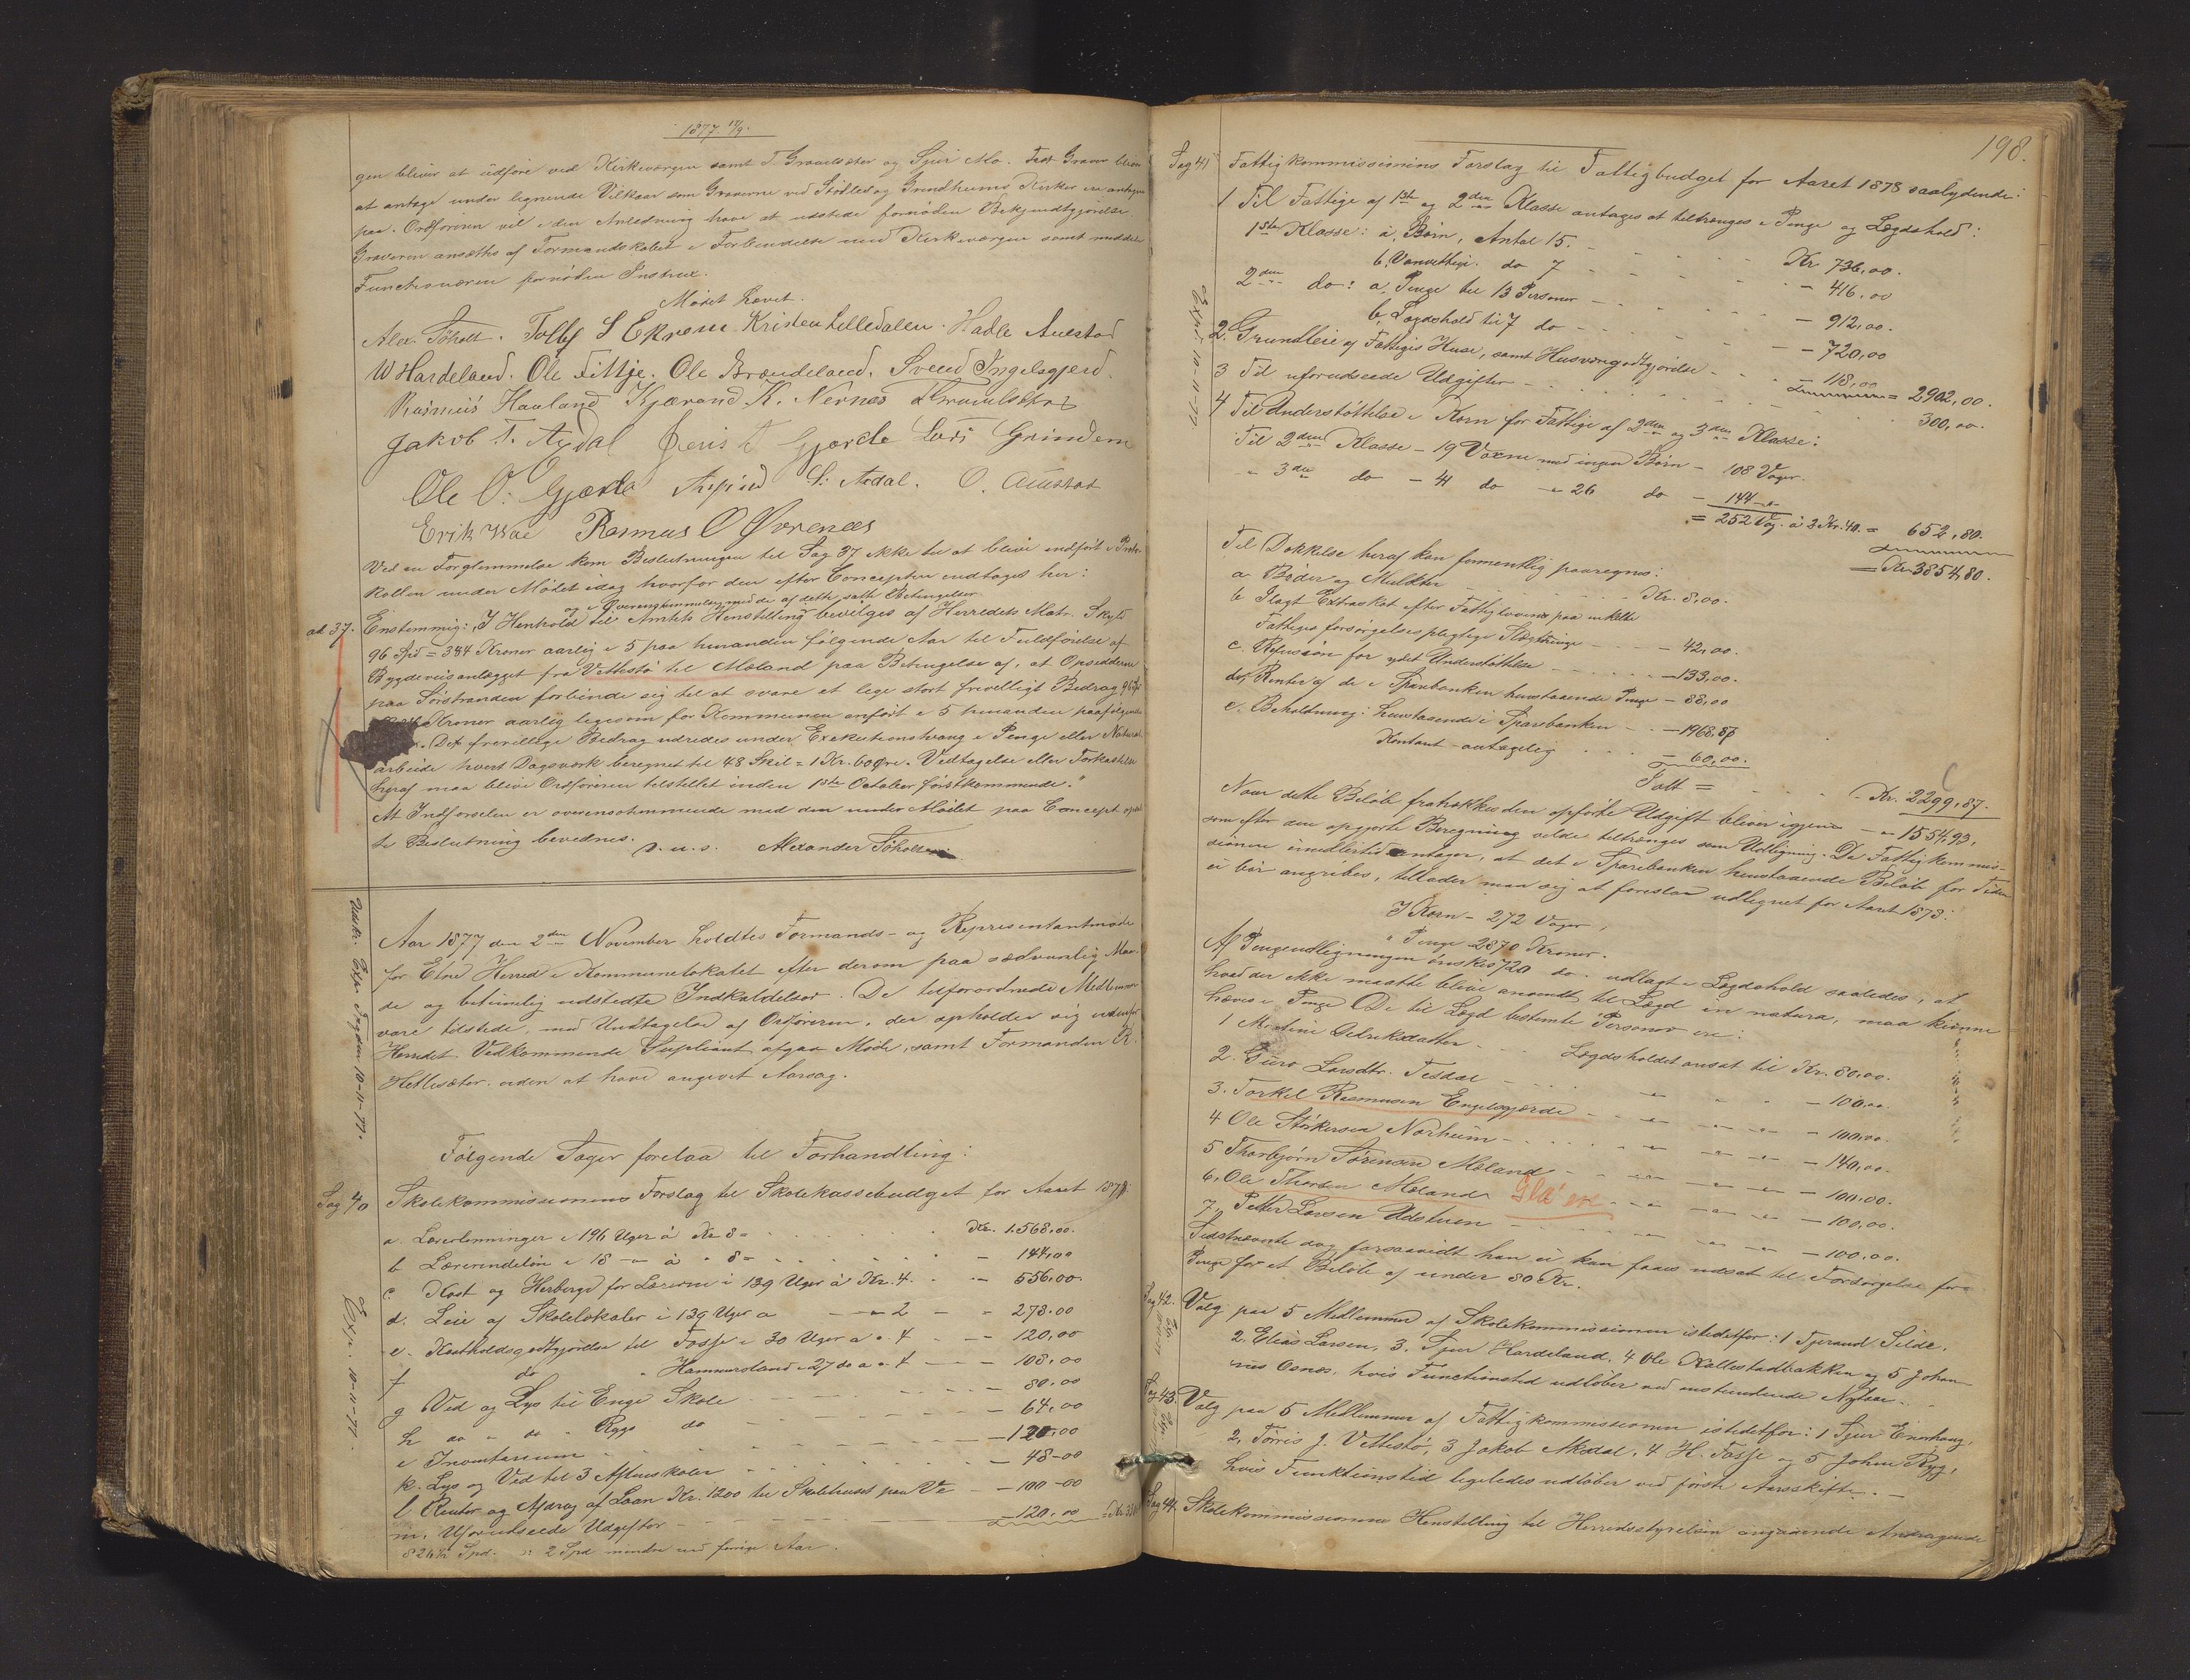 1877 17/9.
gen bliver at udføre ved Kirkeværgen samt T. Gravelsæter og Sjur Mo. Fast Graver bliver
at antage under lignende Vilkaar som Graverne ved Stødles og Grindheims Kirker ere antagne
paa. Ordføreren vil i den Anledning have at udstede fornøden Bekjendtgjørelse
Graveren ansættes af Formandskabet i Forbindelse med Kirkeværgen samt meddele
Functionæren fornøden Instrux.
Mødet hævet.
Alex. Tøholt. Tolby S Ekrem Kristen Lilledalen. Halle Austad
W Hardeland. Ole Fittje. Ole Brændeland. Svend Ingelsgjerd.
Rasmus Haaland Kjærand K. Nernes T Gravelsæter
Jakob T. Axdal A Gjærde Lars Grindem
Ole O. Gjærde S: Axdal. O. Austad
Erik Wae Rasmus O Øvrenæs
Ved en Forglemmelse kom Beslutningen til Sag 37 ikke til at blive indført i Proto-
kollen under Mødet idag hvorfor den efter Concepten indtages her:
og i Overensstemmelse med de af dette satte Betingelser
ad 37. Enstemmig: "I Henhold til Amtets Henstilling bevilges af Herredets Matr. Skyld
96 Spd = 384 Kroner aarlig i 5 paa hinanden følgende Aar til Fuldførelse af
Bygdeveisanlægget fra Vettestø til Mæland paa Betingelse af, at Opsidderne
paa Sørstranden forbinde sig til at svare et lige stort frivilligt Bidrag 96 Spd
Kroner aarlig ligesom for Kommunen anført i 5 hinanden paafølgende
Det frivillige Bidrag udredes under Exekutionstvang i Penge eller Natural-
arbeide hvert Dagsværk beregnet til 48 Skil = 1 Kr. 60 Øre. Vedtagelse eller Forkastelse
heraf maa blive Ordføreren tilstillet inden 1ste October førstkommende."
At Indførselen er overensstemmende med den under Mødet paa Concept opsat-
te Beslutning bevidnes.
D. u. s. Alexander Tøholt
Udskr. Exp. Fogden 10-11-77.
Aar 1877 den 2den November holdtes Formands- og Repræsentantmøde
for Etne Herred i Kommunelokalet efter derom paa sædvanlig Maa-
de og betimelig udstedte Indkaldelser. De tilforordnede Medlemmer
vare tilstede, med Undtagelse af Ordføreren, der opholder sig udenfor
Herredet. Vedkommende Supliant afgav Møde, samt Formanden R.
Hetlesæter uden at have angivet Aarsag.
Følgende Sager forelaa til Forhandling:
Sag 40 Skolekommissionens Forslag til Skolekassebudget for Aaret 1878.
Exp. 10-11-77.
a. Lærerlønninger i 196 Uger á Kr 8 = Kr. 1.568,00.
b Lærerindeløn i 18 - á " 8 = - 144,00
c. Kost og Herberge for Lærerne i 139 Uger á Kr. 4. - 556,00.
d. Leie af Skolelokaler i 139 Uger a - 2 - 278.00
e. Kostholdsgodtgjørelse til Fosse i 30 Uger a " 4 - 120,00
f do " Hammersland i 27 do a " 4 - 108,00
g Ved og Lys til Enge Skole - 80,00
h do " do " Rygs do - 64,00
i Inventarium - 120,00
k. Lys og Ved til 3 Aftenskoler - 48-00
l Renter og Afdrag af Laan Kr. 1200 til Skolehuset paa Ve - 100-00
m. Uforudseede Udgifter - 120,00
826½ Spd. : 2 Spd mindre end forrige Aar.
198.
Sag 41 Fattigkommissionens Forslag til Fattigbudget for Aaret 1878 saalydende:
Exp. 10-11-77.
1 Til Fattige af 1ste og 2den Klasse antages at tiltrænges i Penge og Lægdshold:
1ste Klasse: a, Børn, Antal 15. Kr. 736,00.
b, Vanvittige. do 7 - 416,00
2den do: a, Penge til 13 Personer - 912,00.
b, Lægdshold til 7 do - 720,00
2. Grundleie af Fattiges Huse, samt Husvangodtgjørelse - 118,00 = 2902,00.
3 Til uforudseede Udgifter 300,00.
4 Til Understøttelse i Korn for Fattige af 2den og 3die Klasse:
Til 2den Klasse - 19 Voxne med ingen Børn - 108 Voger.
" 3die do - 41 do " 26 do - 144 -
= 252 Vog. á 2 Kr. 40. = 652,80.
= Kr 3854,80.
Til Dækkelse heraf kan formentlig paaregnes:
a Bøder og Mulkter Kr. 8,00.
b Ilagt Extraskat efter Fattiglovens paa enkelte
Fattiges forsørgelsespligtige Slægtninge - 42,00.
c. Refusion for ydet Understøttelse - 133,00.
d, Renter af de i Sparebanken henstaaende Penge - 88,00
e. Beholdning: henstaaende i Sparebanken - 1968,87
Kontant - antagelig - 60,00.
Talt = Kr. 2299,87.
Naar dette Beløb fratrækkes den opførte Udgift bliver igjen - 1554,93,
som efter den opgjorte Beregning vilde tiltrænges som Udligning. Da Fattigkommis-
sionen imidlertid antager, at det i Sparebanken henstaaende Beløb for Tiden
ei bør angribes, tillader man sig at foreslaa udlignet for Aaret 1878:
I Korn - 272 Voger,
" Penge 2870 Kroner.
Af Pengeudligningen ønskes 720 do. udlagt i Lægdshold saaledes, at
hvad der ikke maatte blive anvendt til Lægd in natura, maa kunne
hæves i Penge. De til Lægd bestemte Personer ere:
1 Martine Didriksdatter Lægdsholdet ansat til Kr. 80,00.
2. Guro Larsdtr. Tesdal - 100,00
3. Torkel Rasmusen Engelsgjærde - 100,00.
4 Ole Størkersen Norheim - 140,00.
5 Thorbjørn Sørensen Mæland - 100,00.
6, Ole Thorsen Mæland - 100,00.
7, Petter Larsen Udstuen - 100,00.
Sidstnævnte dog forsaavidt han ei kan faaes udsat til Forsørgelse for
Penge for et Beløb af under 80 Kr.
Sag 42. Valg paa 5 Medlemmer af Skolekommissionen istedetfor: 1 Tjerand Silde.
2. Elias Larsen, 3. Sjur Hardeland, 4 Ole Kallestadbakken og 5 Johan-
nes Osnes, hvis Functionstid udløber ved instundende Nytaar.
Sag 43. Valg paa 5 Medlemmer af Fattigkommissionen istedetfor: 1 Sjur Enershaug,
2, Tørris J. Vettestø, 3 Jakob Akxdal, 4 H. Fosse og 5 Johan Ryg,
hvis Funktionstid ligeledes udløber ved første Aarsskifte. -
Sag 44. Skolekommissionens Henstilling til Herredsstyrelsen angaaende Andragende